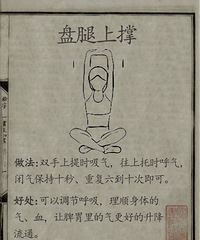 盘腿上撑
做法:双手上提时吸气，往上托时呼气，
闭气保持十秒、重复六到十次即可。
好处:可以调节呼吸，理顺身体的
气、血，让脾胃里的气更好的升降
流通。